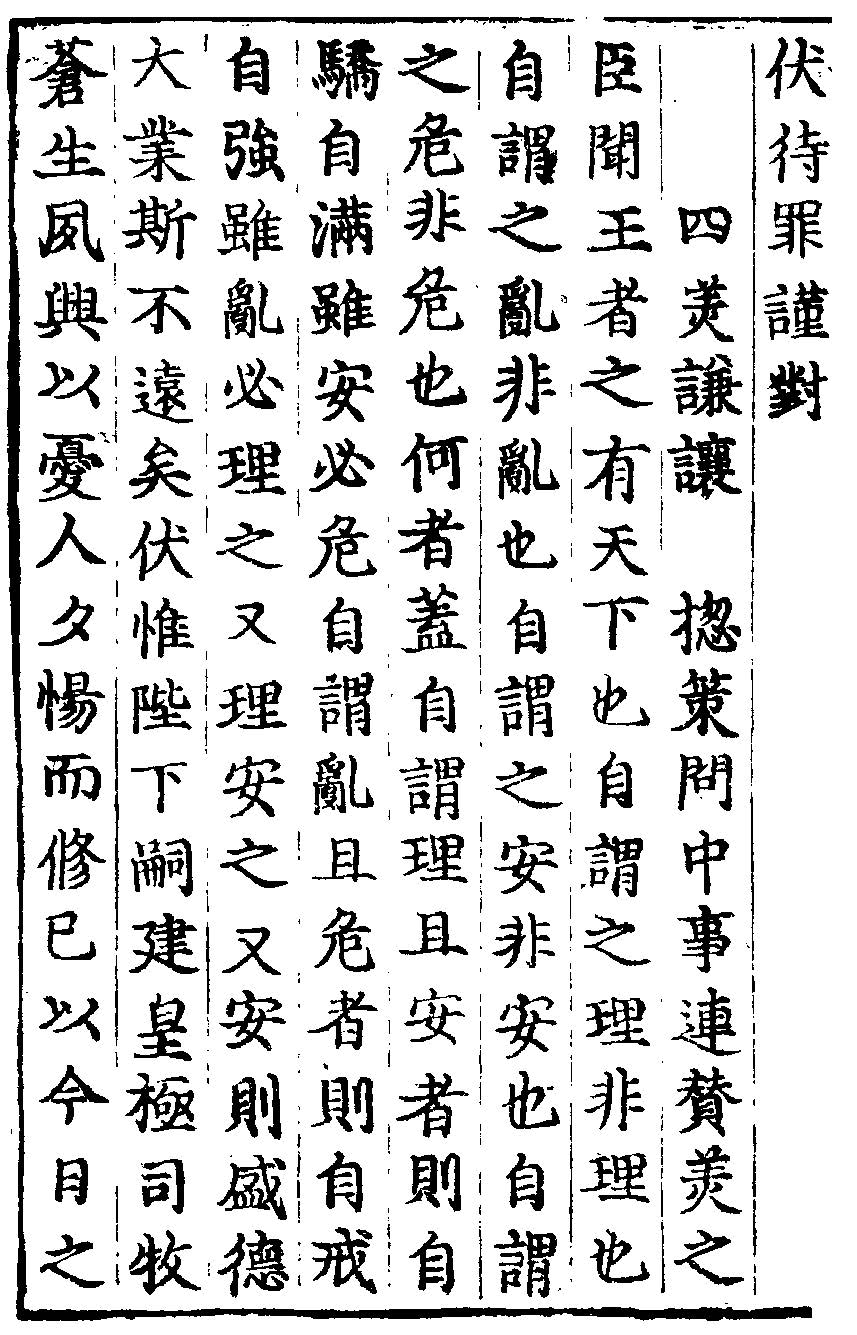 伏待罪謹對
四羙謙讓　揔策問中事連賛羙之
臣聞王者之有天下也自謂之理非理也
自謂之亂非亂也自謂之安非安也自謂
之危非危也何者蓋自謂理且安者則自
驕自滿雖安必危自謂亂且危者則自戒
自強雖亂必理之又理安之又安則盛德
大業斯不遠矣伏惟陛下嗣建皇極司牧
蒼生夙興以憂人夕惕而修已以今日之